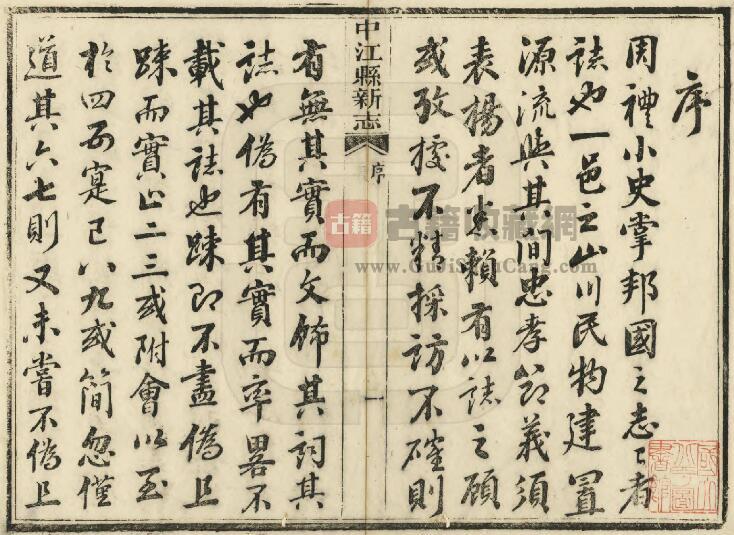 序
周禮小史掌邦國之志〻者
誌也一邑之山川民物建置
源流與其間忠孝節義須
表楊者賴有以誌之顧
或攷據不精採訪不確則
中江縣新志 序 一
有無其實而文飾其詞其
誌也偽有其實而率畧不
載其誌也踈即不盡偽且
踈而實止二三或附會以至
於四五寔已八九或簡忽僅
道其六七則又未嘗不偽且
古籍 古籍收藏網
www.GuJiShouCang.com